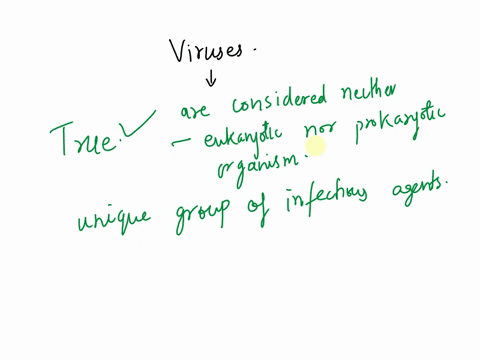 Viruses.
↓
are considered neither
True ✓ – eukaryotic nor prokaryotic
organism.
unique group of infectious agents.